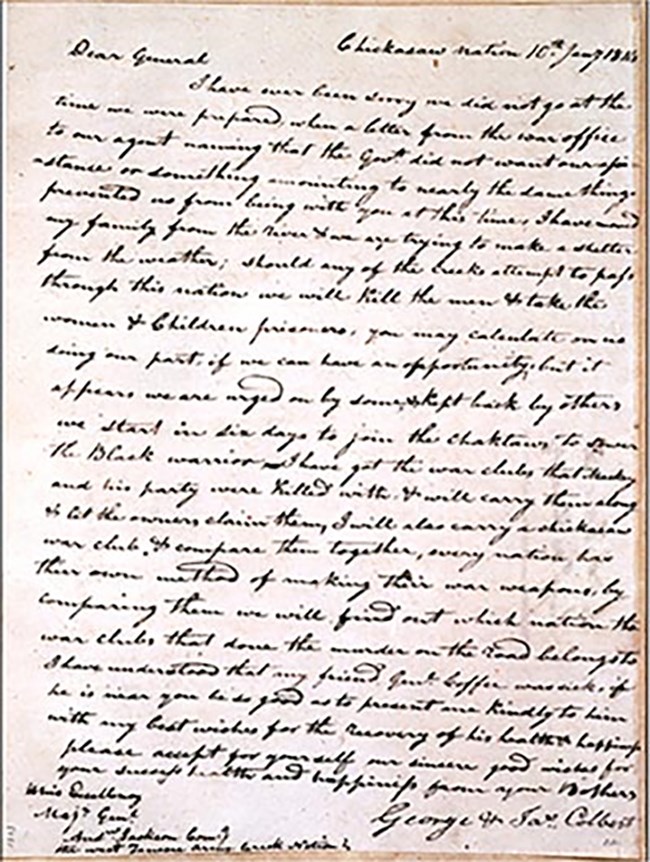 Chickasaw nation 10th Jany 1814
Dear General
I have ever been sorry we did not go at the
time we were prepared when a letter from the war office
to our agent naming that the Govt. did not want our assi-
stance or something amounting to nearly the same thing
prevented us from being with you at this time, I have moved
my family from the river & we are trying to make a shelter
from the weather; should any of the creeks attempt to pass
through this nation we will kill the men & take the
women & Children prisoners, you may calculate on us
doing our part, if we can have an opportunity, but it
appears we are urged on by some, & kept back by others
we start in six days to join the chaktaws to
the Black warrior I have got the war clubs that
and his party were killed with & will carry them along
& let the owners claim them, I will also carry a chickasaw
war club, & compare them together, every nation has
their own method of making their war weapons, by
comparing them we will find out which nation the
war clubs that done the murder on the road belongs to
I have understood that my friend Genl. Coffee was sick, if
he is near you be so good as to present me kindly to him
with my best wishes for the recovery of his health & happiness
please accept for yourself our sincere good wishes for
your success health and happiness from your Brothers
George & Jas. Colbert
His Excellency
Majr. Genl.
Andw. Jackson Comg
the west Tennessee army Creek Nation